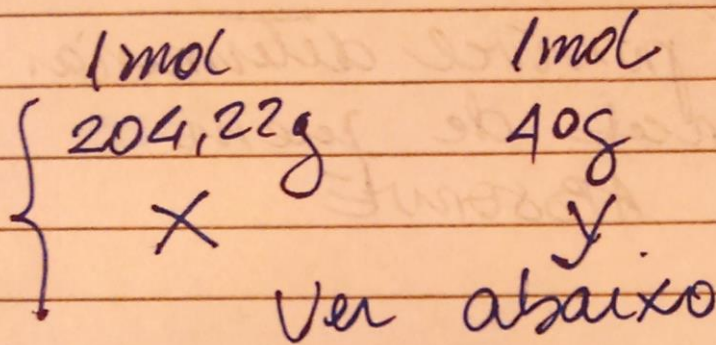 1mol 1mol
204,22g 40g
X y
Ver abaixo